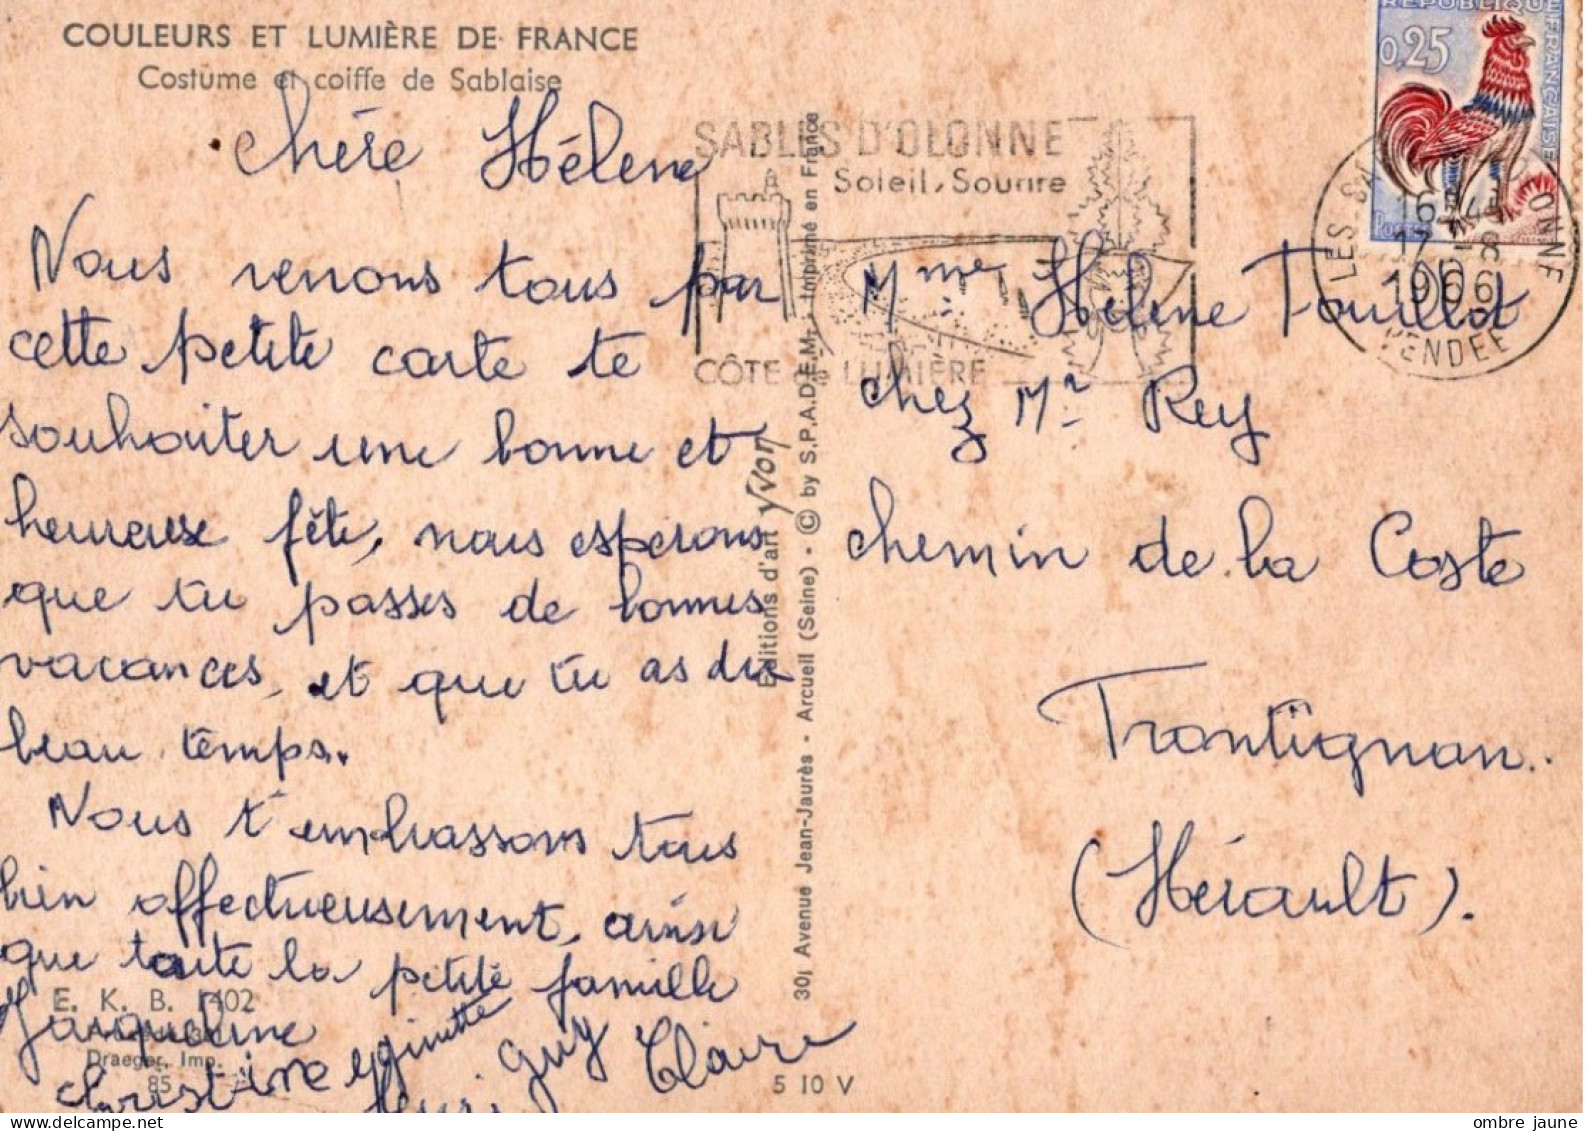 COULEURS ET LUMIÈRE DE FRANCE
Costume et coiffe de Sablaise
chére Hélene
Nous venons tous par
cette petite carte te
souhaiter une bonne et
heureuse fête, nous esperons
que tu passes de bonnes
vacances, et que tu as du
beau temps.
Nous t'embrassons tous
bien affectueusement, ainsi
que toute la petite famille
Jacqueline
Christine ginette guy Claire
Henri
E. K. B. 1402
Draeger, Imp.
85
5 10 V
Editions d'art yvon
301 Avenue Jean-Jaurès - Arcueil (Seine) - © by S.P.A.D.E.M. - Imprimé en France
SABLES D'OLONNE
Soleil, Sourire
CÔTE DE LUMIÈRE
REPUBLIQUE FRANÇAISE
0,25
LES SABLES D'OLONNE
16 H 45
17
1966
VENDEE
Mme Hélene Touillot
chez Mr Rey
chemin de la Coste
Frontignan.
(Hérault).
ombre jaune